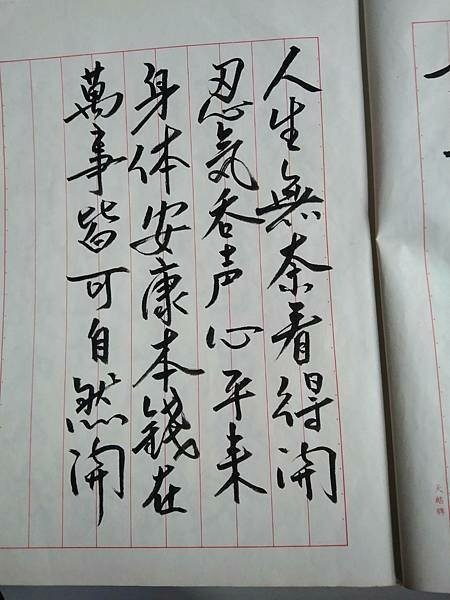 人生無奈看得開
忍氣吞声心平来
身体安康本錢在
萬事皆可自然開